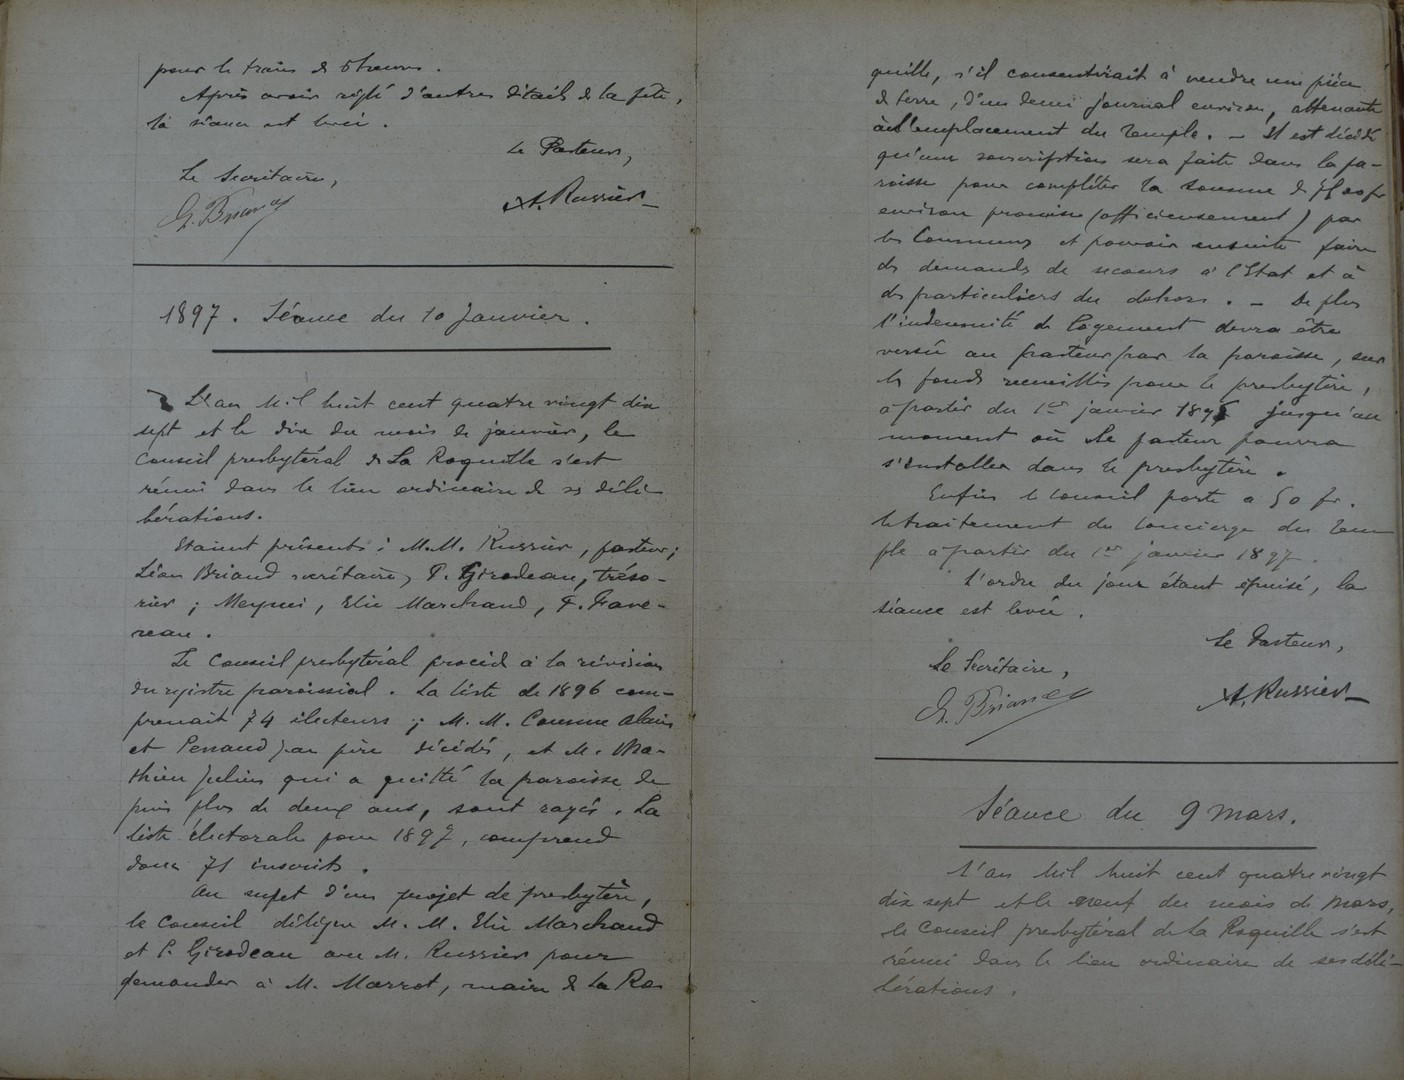 pour le train de 5 heures.
Après avoir réglé d'autres détails de la fête,
la séance est levée.
Le Pasteur,
Le Secrétaire,
A. Russier
1897. Séance du 10 Janvier.
L'an Mil huit cent quatre vingt dix
sept et le dix du mois de janvier, le
Conseil presbytéral de La Roquille s'est
réuni dans le lieu ordinaire de ses déli-
bérations.
Etaient présents : M.M. Russier, pasteur ;
Léon Briand secrétaire, P. Girodeau, tréso-
rier ; Meynei, Elie Marchand, F. Fave-
reau.
Le Conseil presbytéral procède à la révision
du registre paroissial. La liste de 1896 com-
prenait 74 électeurs ; M. M. Cousme Alain
et Penaud Jean père décédés, et M. Ma-
thieu Julien qui a quitté la paroisse de
puis plus de deux ans, sont rayés. La
liste électorale pour 1897, comprend
donc 71 inscrits.
Au sujet d'un projet de presbytère,
le Conseil délègue M. M. Elie Marchand
et P. Girodeau avec M. Russier pour
demander à M. Marrot, maire de La Ro
quille, s'il consentirait à vendre une pièce
de terre, d'un demi journal environ, attenante
à l'emplacement du Temple. - Il est décidé
qu'une souscription sera faite dans la pa-
roisse pour compléter la somme de
environ promise (officieusement) par
les Communes et pouvoir ensuite faire
des demandes de secours à l'Etat et à
des particuliers du dehors. - De plus
l'indemnité de logement devra être
versée au pasteur par la paroisse, sur
les fonds recueillis pour le presbytère,
à partir du 1er janvier jusqu'au
moment où Le pasteur pourra
s'installer dans le presbytère.
Enfin le conseil porte a 50 fr.
le traitement du concierge du Tem
ple a partir du 1er janvier 1897.
L'ordre du jour étant épuisé, la
séance est levée.
Le Pasteur,
Le Secrétaire,
A. Russier
Séance du 9 mars.
L'an Mil huit cent quatre vingt
dix sept et le neuf du mois de mars,
le Conseil presbytéral de La Roquille s'est
réuni dans le lieu ordinaire de ses déli-
bérations.